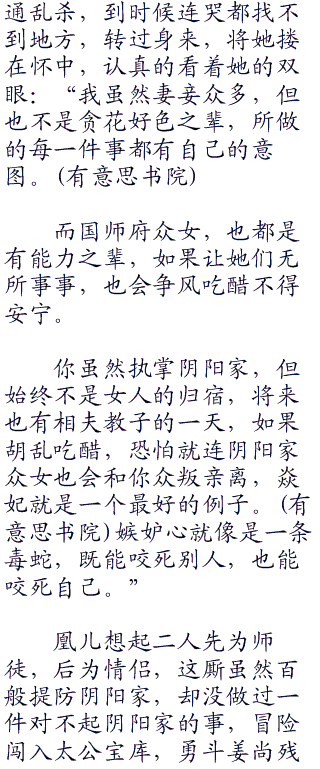 通乱杀，到时候连哭都找不
到地方，转过身来，将她搂
在怀中，认真的看着她的双
眼：“我虽然妻妾众多，但
也不是贪花好色之辈，所做
的每一件事都有自己的意
图。(有意思书院)
而国师府众女，也都是
有能力之辈，如果让她们无
所事事，也会争风吃醋不得
安宁。
你虽然执掌阴阳家，但
始终不是女人的归宿，将来
也有相夫教子的一天，如果
胡乱吃醋，恐怕就连阴阳家
众女也会和你众叛亲离，焱
妃就是一个最好的例子。(有
意思书院)嫉妒心就像是一条
毒蛇，既能咬死别人，也能
咬死自己。”
凰儿想起二人先为师
徒，后为情侣，这厮虽然百
般提防阴阳家，却没做过一
件对不起阴阳家的事，冒险
闯入太公宝库，勇斗姜尚残